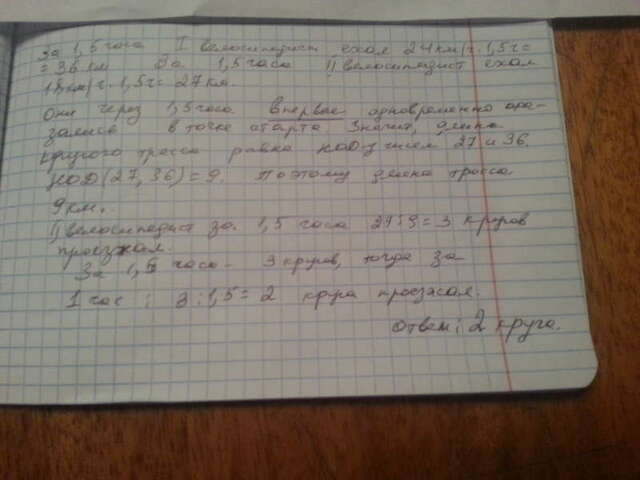 За 1,5 часа I велосипедист ехал 24км/ч·1,5ч=
=36 км За 1,5 часа II велосипедист ехал
18км/ч·1,5ч=27км.
Они через 1,5 часа впервые одновременно ока-
зались в точке старта Значит, длина
кругого трасса равна НОД чисел 27 и 36.
НОД(27,36)=9. Поэтому длина трасса
9км.
II велосипедист за 1,5 часа 27:9=3 кругов
проезжал.
За 1,5 часа - 3 кругов, тогда за
1 час : 3:1,5=2 круга проезжал.
Ответ: 2 круга.